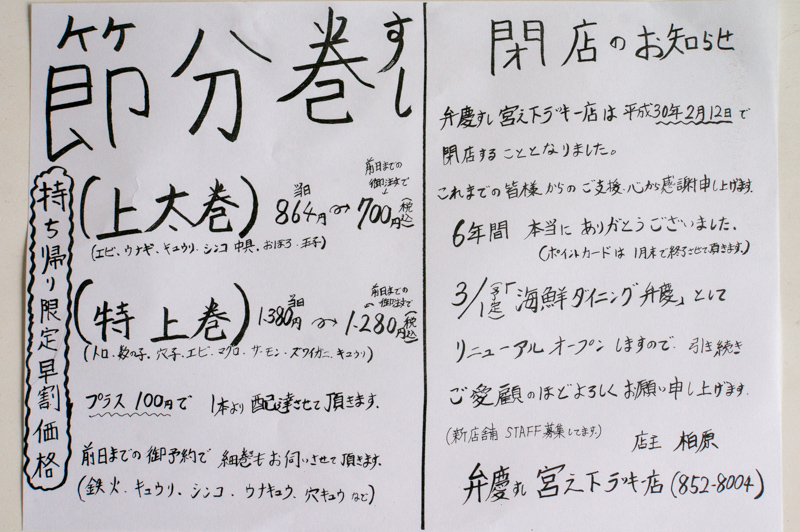 節分巻すし
持ち帰り限定早割価格
(上太巻) 当日 864円 → 前日までの御注文で 700円(税込)
(エビ、ウナギ、キュウリ、シンコ 中具、おぼろ、玉子)
(特上巻) 当日 1.380円 → 前日までの御注文で 1.280円(税込)
(トロ、数の子、穴子、エビ、マグロ、サーモン、ズワイガニ、キュウリ)
プラス 100円で 1本より 配達させて頂きます。
前日までの御予約で 細巻もお伺いさせて頂きます。
(鉄火、キュウリ、シンコ、ウナキュウ、穴キュウ など)
閉店のお知らせ
弁慶すし 宮之下ラッキー店は 平成30年2月12日で
閉店することとなりました。
これまでの皆様からのご支援、心から感謝申し上げます。
6年間 本当に ありがとうございました。
(ポイントカードは 1月末で終了させて頂きます。)
3/1(予定)「海鮮ダイニング弁慶」として
リニューアルオープンしますので、引き続き
ご愛顧のほどよろしくお願い申し上げます。
(新店舗 STAFF募集してます。)
店主 柏原
弁慶すし 宮之下ラッキー店(852-8004)